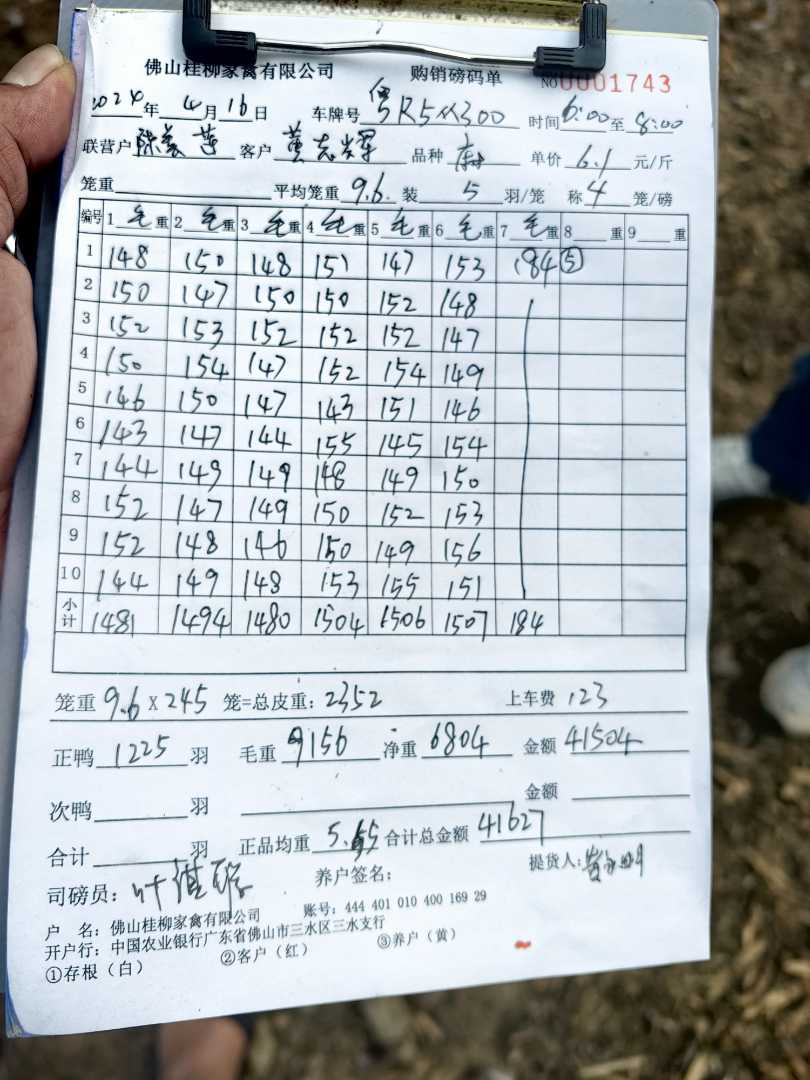 佛山桂柳家禽有限公司 购销磅码单 NO0001743
2024年4月16日 车牌号 粤R5 300 时间6:00至8:00
联营户 陈 客户 董志辉 品种 单价6.1元/斤
笼重 平均笼重9.6 装5羽/笼 称4笼/磅
编号 1毛重 2毛重 3毛重 4毛重 5毛重 6毛重 7毛重 8重 9重
1 148 150 148 151 147 153 184⑤
2 150 147 150 150 152 148
3 152 153 152 152 152 147
4 150 154 147 152 154 149
5 146 150 147 143 151 146
6 143 147 144 155 145 154
7 144 149 149 148 149 150
8 152 147 149 150 152 153
9 152 148 146 150 149 156
10 144 149 148 153 155 151
小计 1481 1494 1480 1504 1506 1507 184
笼重9.6×245笼=总皮重:2352 上车费 123
正鸭1225羽 毛重9156 净重6804 金额41504
次鸭 羽 金额
合计 羽 正品均重5.55 合计总金额41627
司磅员:叶 养户签名: 提货人:
户 名:佛山桂柳家禽有限公司 账号:444 401 010 400 169 29
开户行:中国农业银行广东省佛山市三水区三水支行
①存根(白) ②客户(红) ③养户(黄)